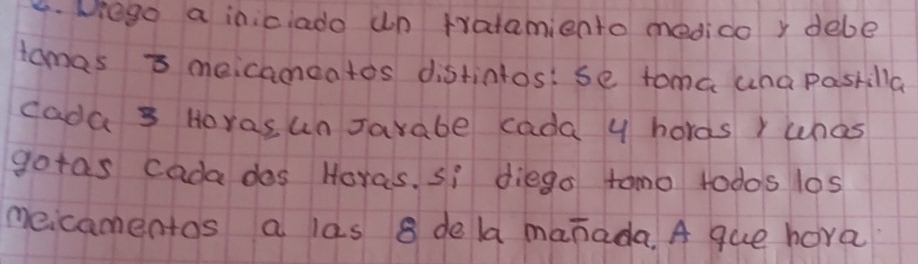 2. Diego a iniciado un tratamiento medico y debe
tamas 3 meicamentos distintos: se toma una pastilla
cada 3 Horas, un Jarabe cada 4 horas y unas
gotas cada dos Horas. si diego tomo todos los
meicamentos a las 8 de la mañada. A que hora